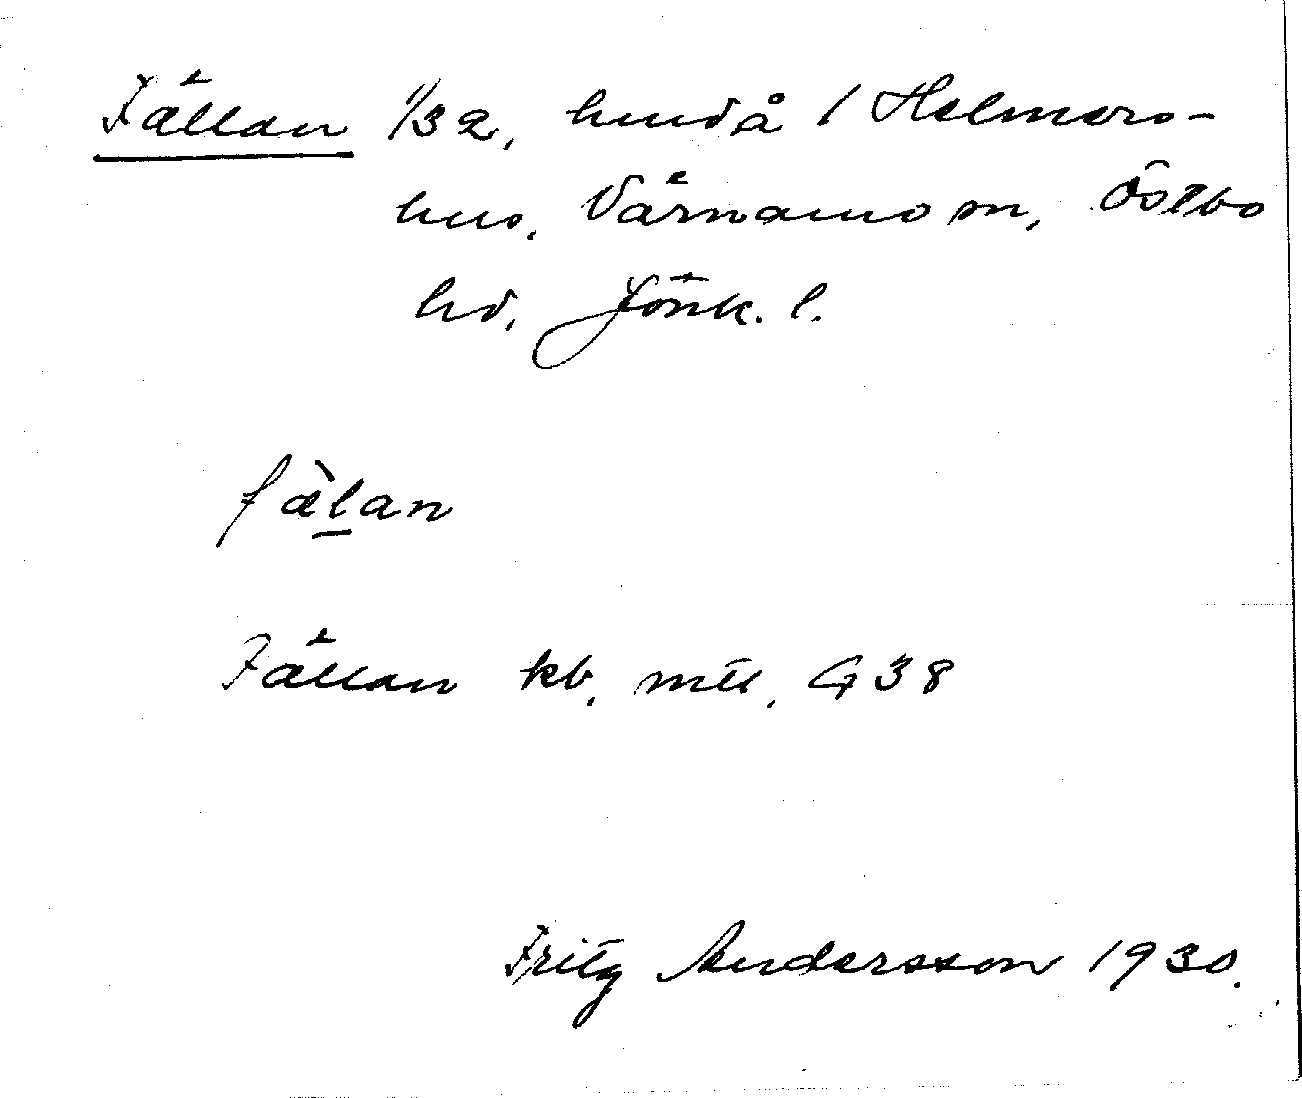 Fällan 1/32, hmdå / Helmers-
hus, Värnamo sn, Östbo
hd, Jönk. l.
fàlan
Fällan kb. mtl, G 38
Fritz Andersson 1930.